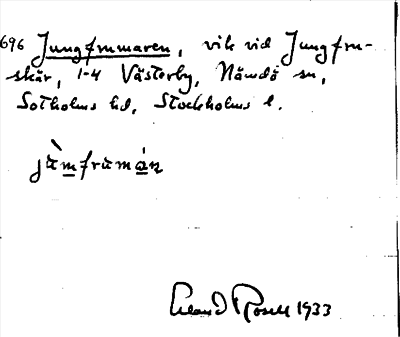 696 Jungfrumaren, vik vid Jungfru-
skär, 1-4 Västerby, Nåwdö sn,
Sotholms hd, Stockholms l.
jùmfrumán
Rosell 1933